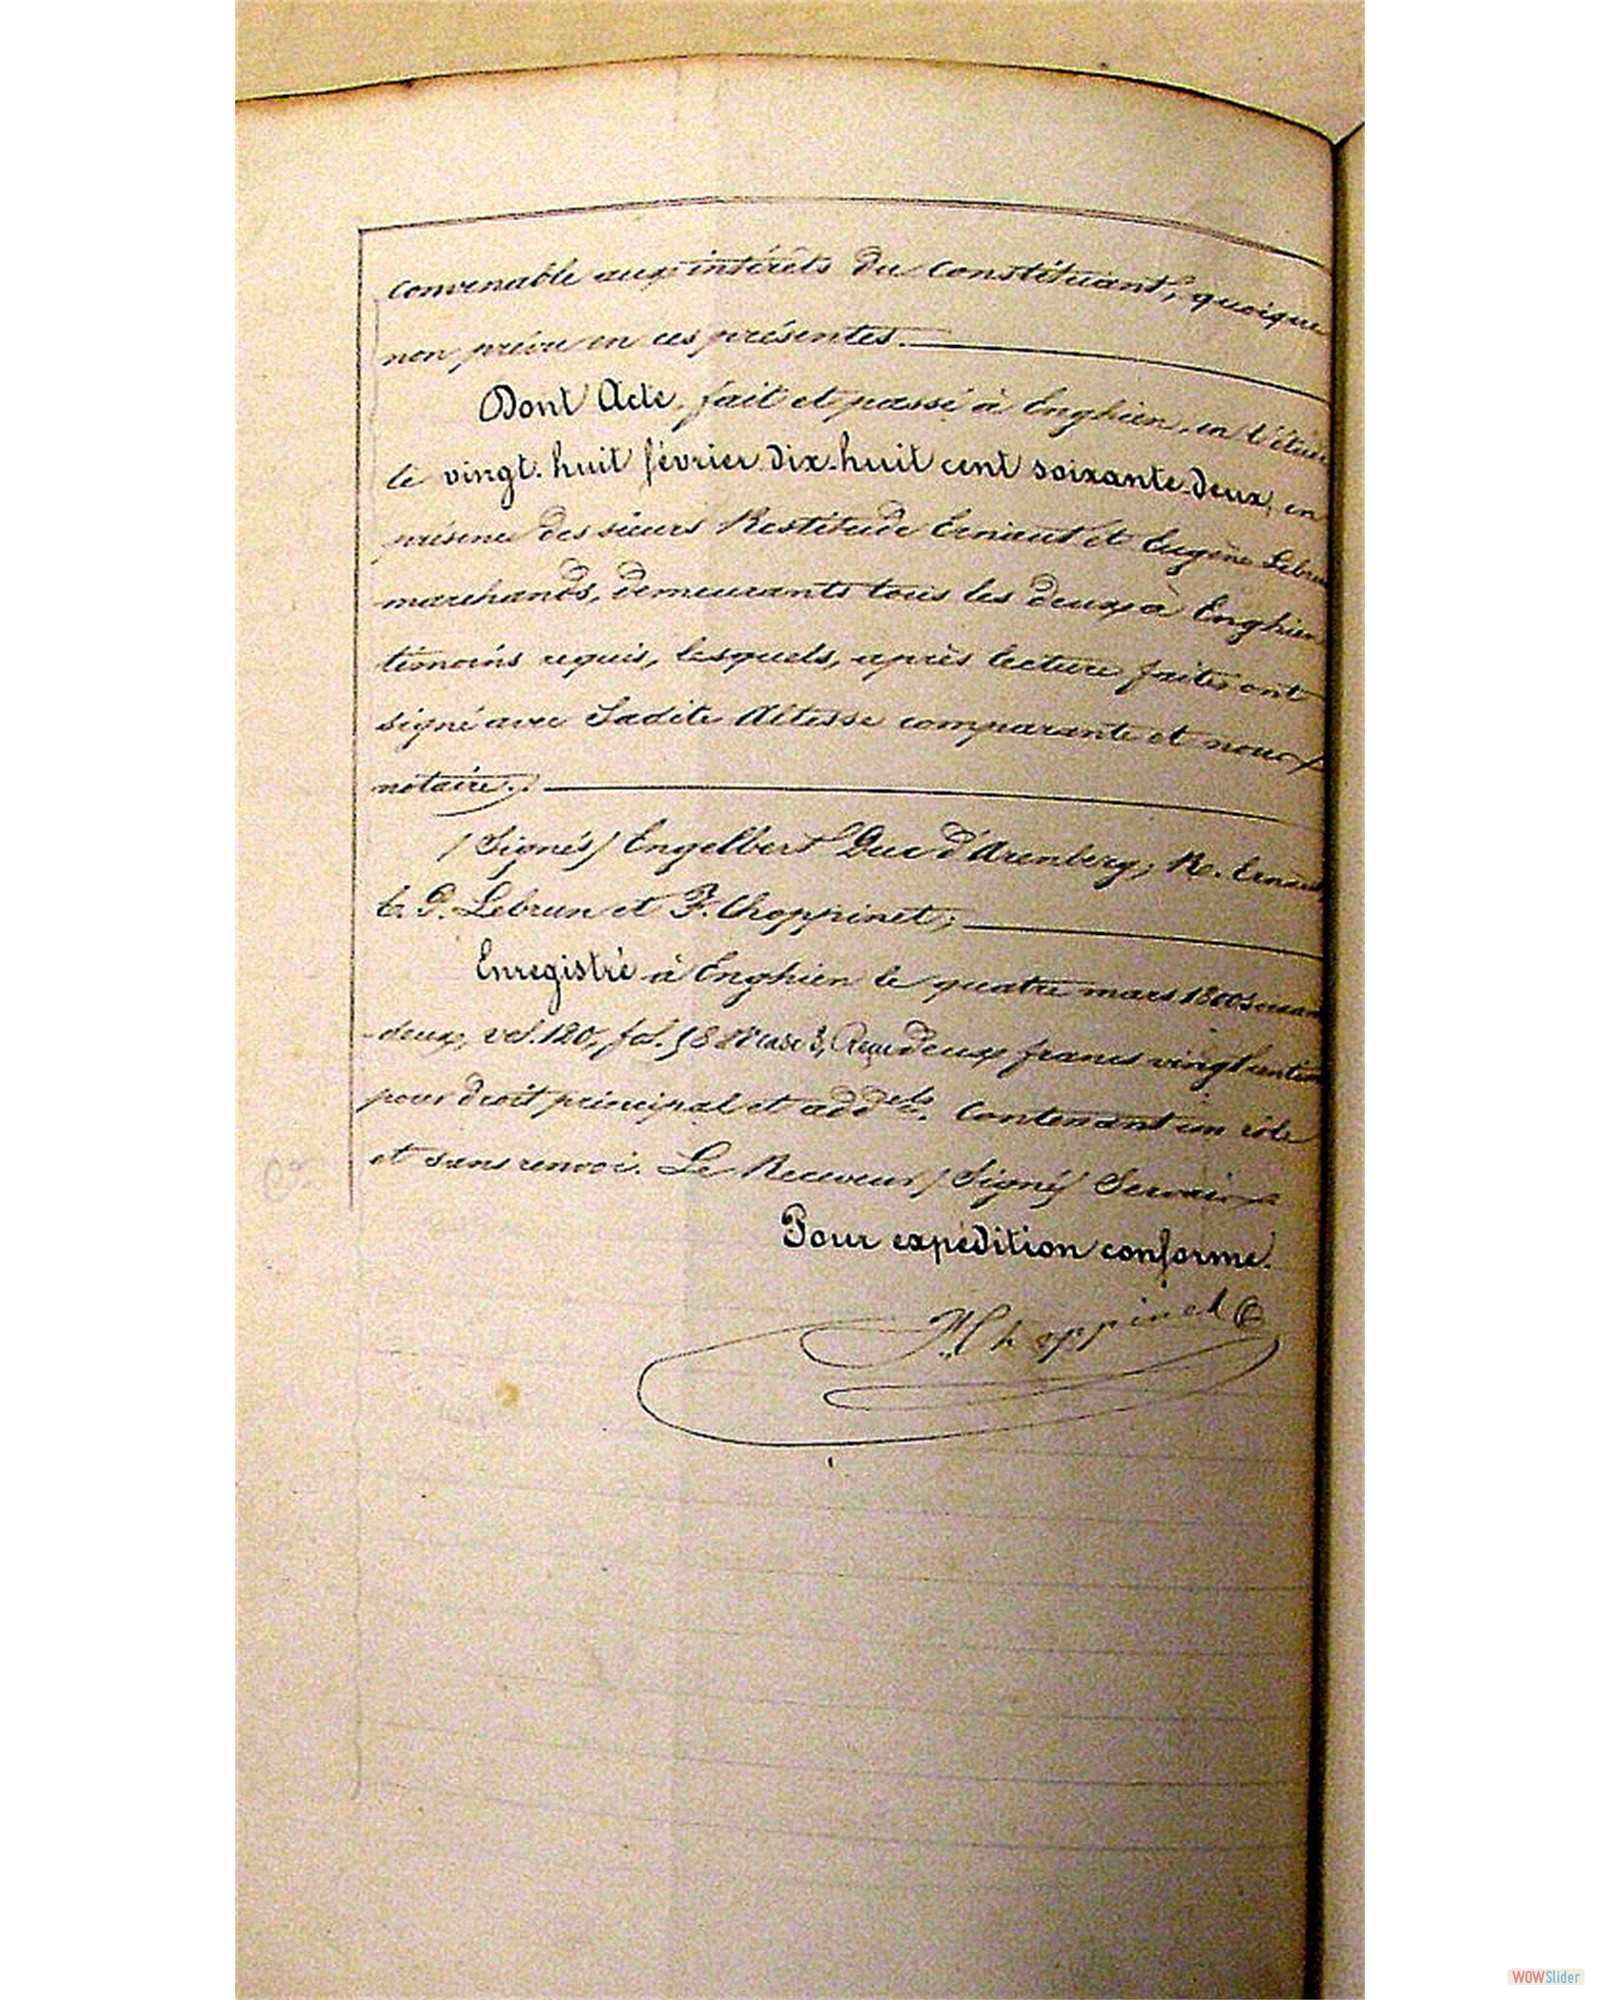 convenable aux intérêts du Constituant, quoique
non prévu en ces présentes.
Dont Acte, fait et passé à Enghien, en l'étude
le vingt-huit février dix-huit cent soixante-deux, en
présence des sieurs Restitude Ernaut et Eugène Lebrun
marchands, demeurants tous les deux à Enghien
témoins requis, lesquels, après lecture faite, ont
signé avec Sadite Altesse comparante et nous
notaire.
/Signés/ Engelbert Duc d'Arenberg; R. Ernaut
E. D. Lebrun et F. Choppinet;
Enregistré à Enghien le quatre mars 1800 soixan
deux, vol. 120, fol. 58 case 3, Reçu deux francs vingt centim
pour droit principal et addels. Contenant un rôle
et sans renvoi. Le Receveur /Signé/ Servais
Pour expédition conforme.
Choppinet
WOWSlider